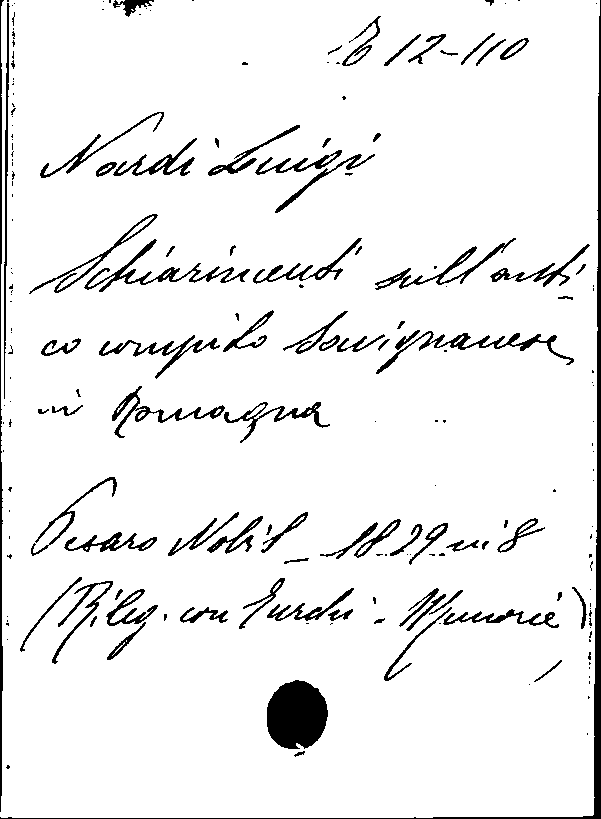 12-110
Nardi Luigi
Schiarimenti sull'anti
co compito Savignanese
in Romagna
Pesaro Nobili - 1829 in 8
(Rileg. con - Memorie)